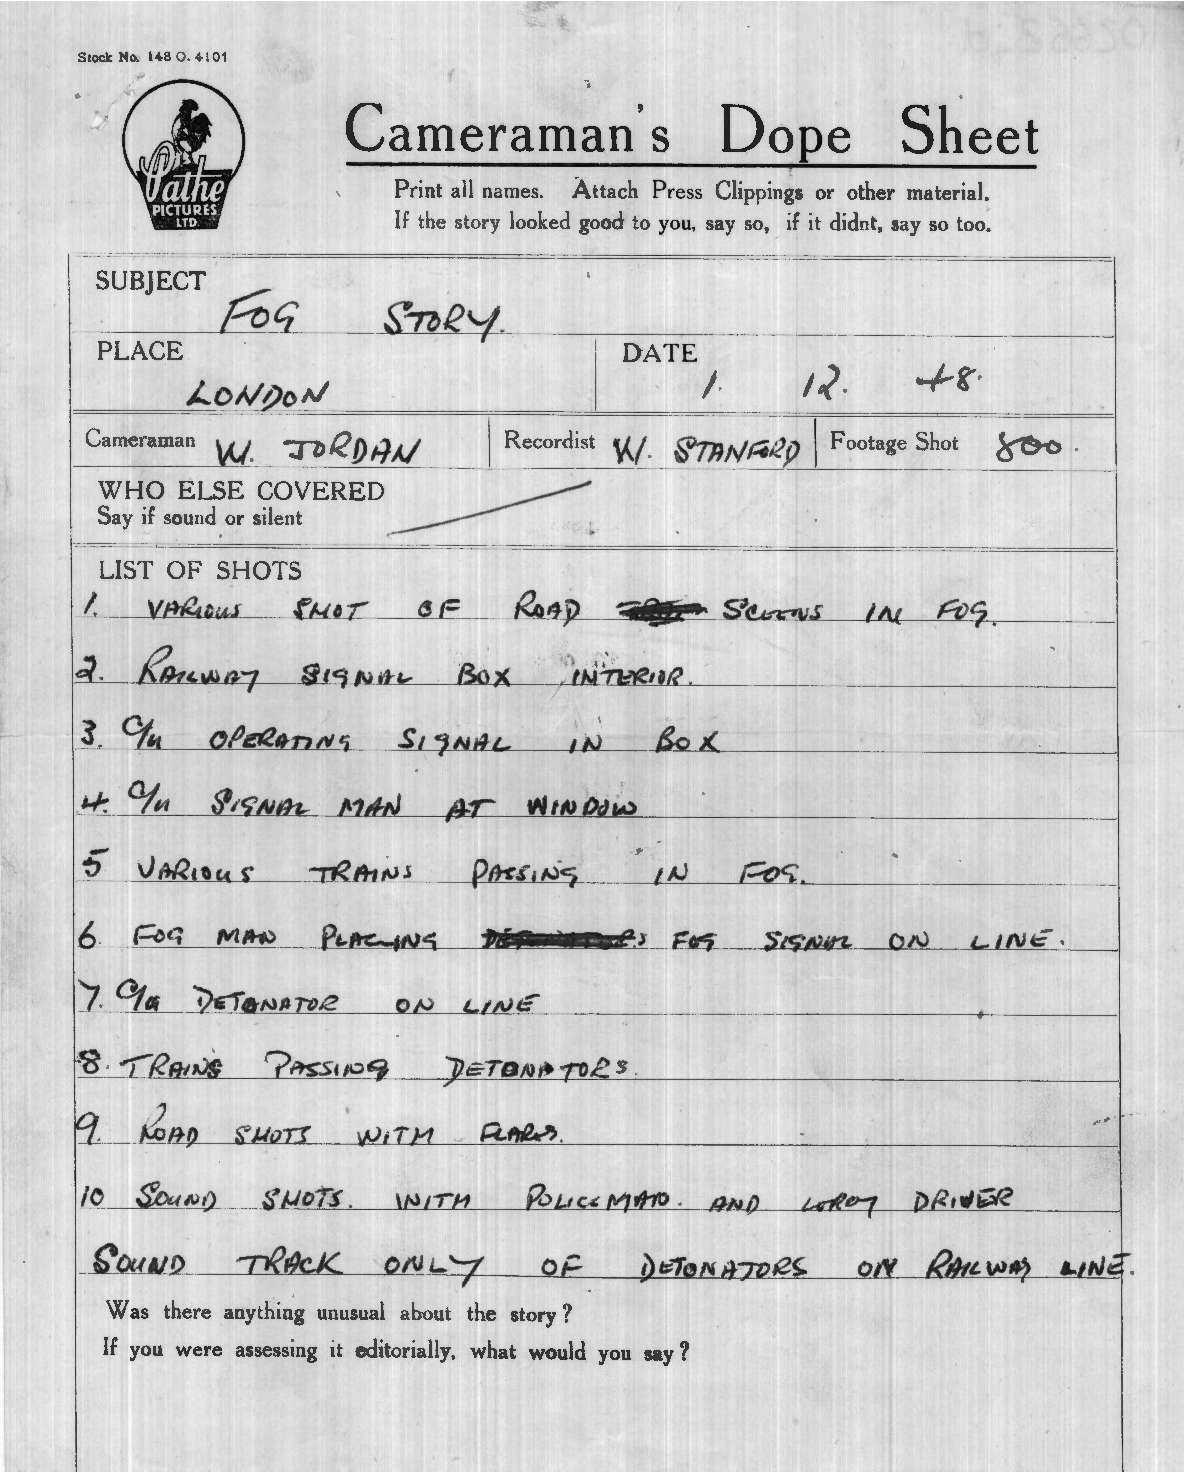 Stock No. 148 O. 4101
Pathe
PICTURES
LTD.
Cameraman's Dope Sheet
Print all names. Attach Press Clippings or other material.
If the story looked good to you, say so, if it didnt, say so too.
SUBJECT
FOG STORY.
PLACE
LONDON
DATE
1. 12. 48.
Cameraman W. JORDAN
Recordist W. STANFORD
Footage Shot 800.
WHO ELSE COVERED
Say if sound or silent
LIST OF SHOTS
1. VARIOUS SHOT OF ROAD SCEENS IN FOG.
2. RAILWAY SIGNAL BOX INTERIOR.
3. C/U OPERATING SIGNAL IN BOX
4. C/U SIGNAL MAN AT WINDOW
5 VARIOUS TRAINS PASSING IN FOG.
6. FOG MAN PLACING DETONATORS FOG SIGNAL ON LINE.
7. C/U DETONATOR ON LINE
8. TRAINS PASSING DETONATORS.
9. ROAD SHOTS WITH FLARES.
10 SOUND SHOTS. WITH POLICEMAN. AND LORRY DRIVER
SOUND TRACK ONLY OF DETONATORS ON RAILWAY LINE.
Was there anything unusual about the story?
If you were assessing it editorially, what would you say?